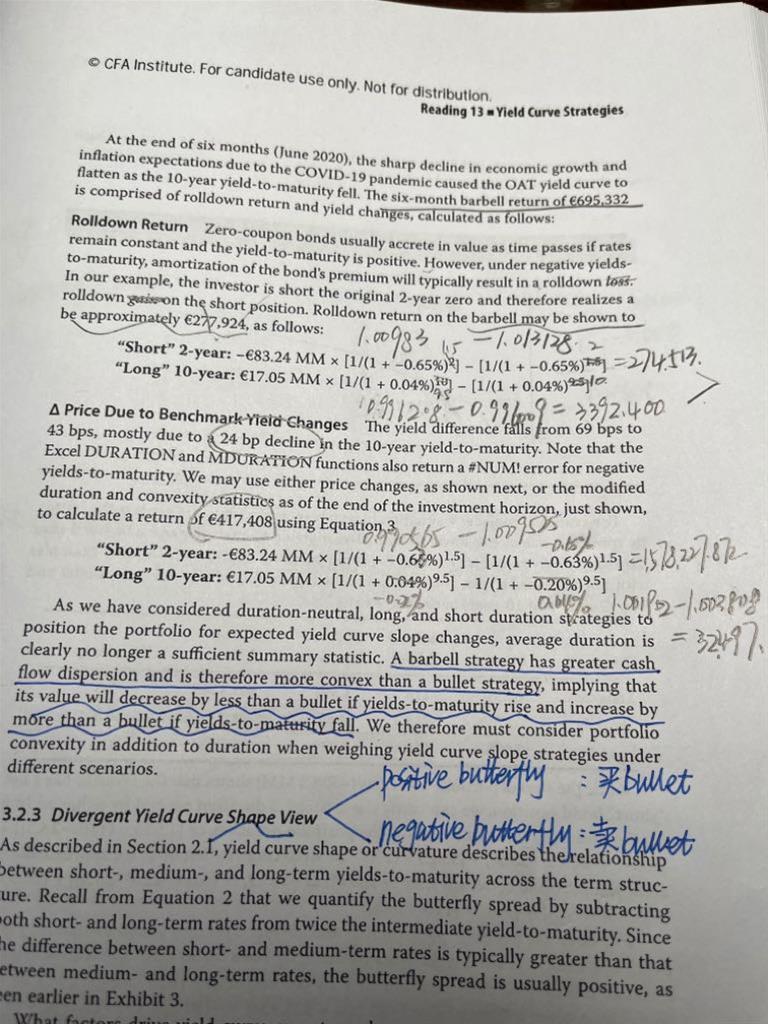 © CFA Institute. For candidate use only. Not for distribution.
Reading 13 ■ Yield Curve Strategies
At the end of six months (June 2020), the sharp decline in economic growth and
inflation expectations due to the COVID-19 pandemic caused the OAT yield curve to
flatten as the 10-year yield-to-maturity fell. The six-month barbell return of €695,332
is comprised of rolldown return and yield changes, calculated as follows:
Rolldown Return Zero-coupon bonds usually accrete in value as time passes if rates
remain constant and the yield-to-maturity is positive. However, under negative yields-
to-maturity, amortization of the bond's premium will typically result in a rolldown loss.
In our example, the investor is short the original 2-year zero and therefore realizes a
rolldown on the short position. Rolldown return on the barbell may be shown to
be approximately €277,924, as follows:
1.00983 – 1.013128
1.5 2
"Short" 2-year: –€83.24 MM × [1/(1 + –0.65%)2] – [1/(1 + –0.65%) ] = 274,513.
"Long" 10-year: €17.05 MM × [1/(1 + 0.04%) ] – [1/(1 + 0.04%) ]
9.5 10
– 0.996009 = 3392.400
Δ Price Due to Benchmark Yield Changes The yield difference falls from 69 bps to
43 bps, mostly due to a 24 bp decline in the 10-year yield-to-maturity. Note that the
Excel DURATION and MDURATION functions also return a #NUM! error for negative
yields-to-maturity. We may use either price changes, as shown next, or the modified
duration and convexity statistics as of the end of the investment horizon, just shown,
to calculate a return of €417,408 using Equation 3.
0.990565 – 1.009525
–0.65%
"Short" 2-year: -€83.24 MM × [1/(1 + –0.63%)1.5] – [1/(1 + –0.63%)1.5] = 1,578,227.872
"Long" 10-year: €17.05 MM × [1/(1 + 0.04%)9.5] – 1/(1 + –0.20%)9.5]
–0.2% 0.04% 1.001902 – 1.003808
= 32497.
As we have considered duration-neutral, long, and short duration strategies to
position the portfolio for expected yield curve slope changes, average duration is
clearly no longer a sufficient summary statistic. A barbell strategy has greater cash
flow dispersion and is therefore more convex than a bullet strategy, implying that
its value will decrease by less than a bullet if yields-to-maturity rise and increase by
more than a bullet if yields-to-maturity fall. We therefore must consider portfolio
convexity in addition to duration when weighing yield curve slope strategies under
different scenarios.
positive butterfly : 买bullet
3.2.3 Divergent Yield Curve Shape View
negative butterfly : 卖bullet
As described in Section 2.1, yield curve shape or curvature describes the relationship
between short-, medium-, and long-term yields-to-maturity across the term struc-
ure. Recall from Equation 2 that we quantify the butterfly spread by subtracting
oth short- and long-term rates from twice the intermediate yield-to-maturity. Since
he difference between short- and medium-term rates is typically greater than that
etween medium- and long-term rates, the butterfly spread is usually positive, as
een earlier in Exhibit 3.
What factors drive yield